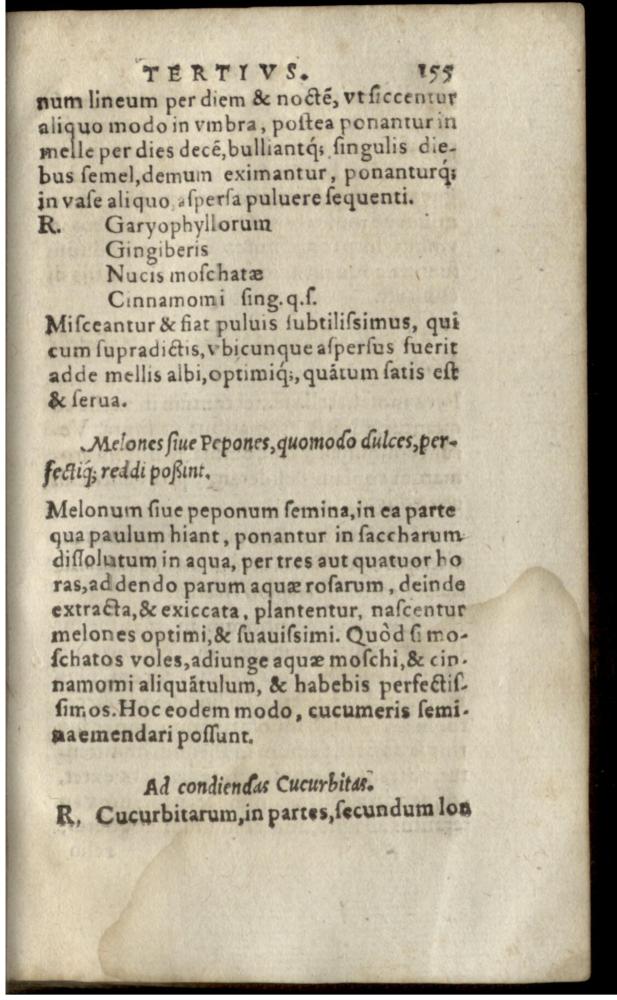 TERTIVS. 155
num lineum per diem & noctẽ, vt ſiccentur
aliquo modo in vmbra, poſtea ponantur in
melle per dies decẽ, bulliantq́; ſingulis die-
bus ſemel, demum eximantur, ponanturq́;
in vaſe aliquo, aſperſa puluere ſequenti.
R. Garyophyllorum
Gingiberis
Nucis moſchatæ
Cinnamomi ſing. q.ſ.
Miſceantur & fiat puluis ſubtiliſsimus, qui
cum ſupradictis, vbicunque aſperſus fuerit
adde mellis albi, optimiq́;, quãtum ſatis eſt
& ſerua.
Melones ſiue Pepones, quomodo dulces, per-
fectiq́; reddi poßint.
Melonum ſiue peponum ſemina, in ea parte
qua paulum hiant, ponantur in ſaccharum
diſſolutum in aqua, per tres aut quatuor ho
ras, addendo parum aquæ roſarum, deinde
extracta, & exiccata, plantentur, naſcentur
melones optimi, & ſuauiſsimi. Quòd ſi mo-
ſchatos voles, adiunge aquæ moſchi, & cin-
namomi aliquãtulum, & habebis perfectiſ-
ſimos. Hoc eodem modo, cucumeris ſemi-
na emendari poſſunt.
Ad condiendas Cucurbitas.
R. Cucurbitarum, in partes, ſecundum lon